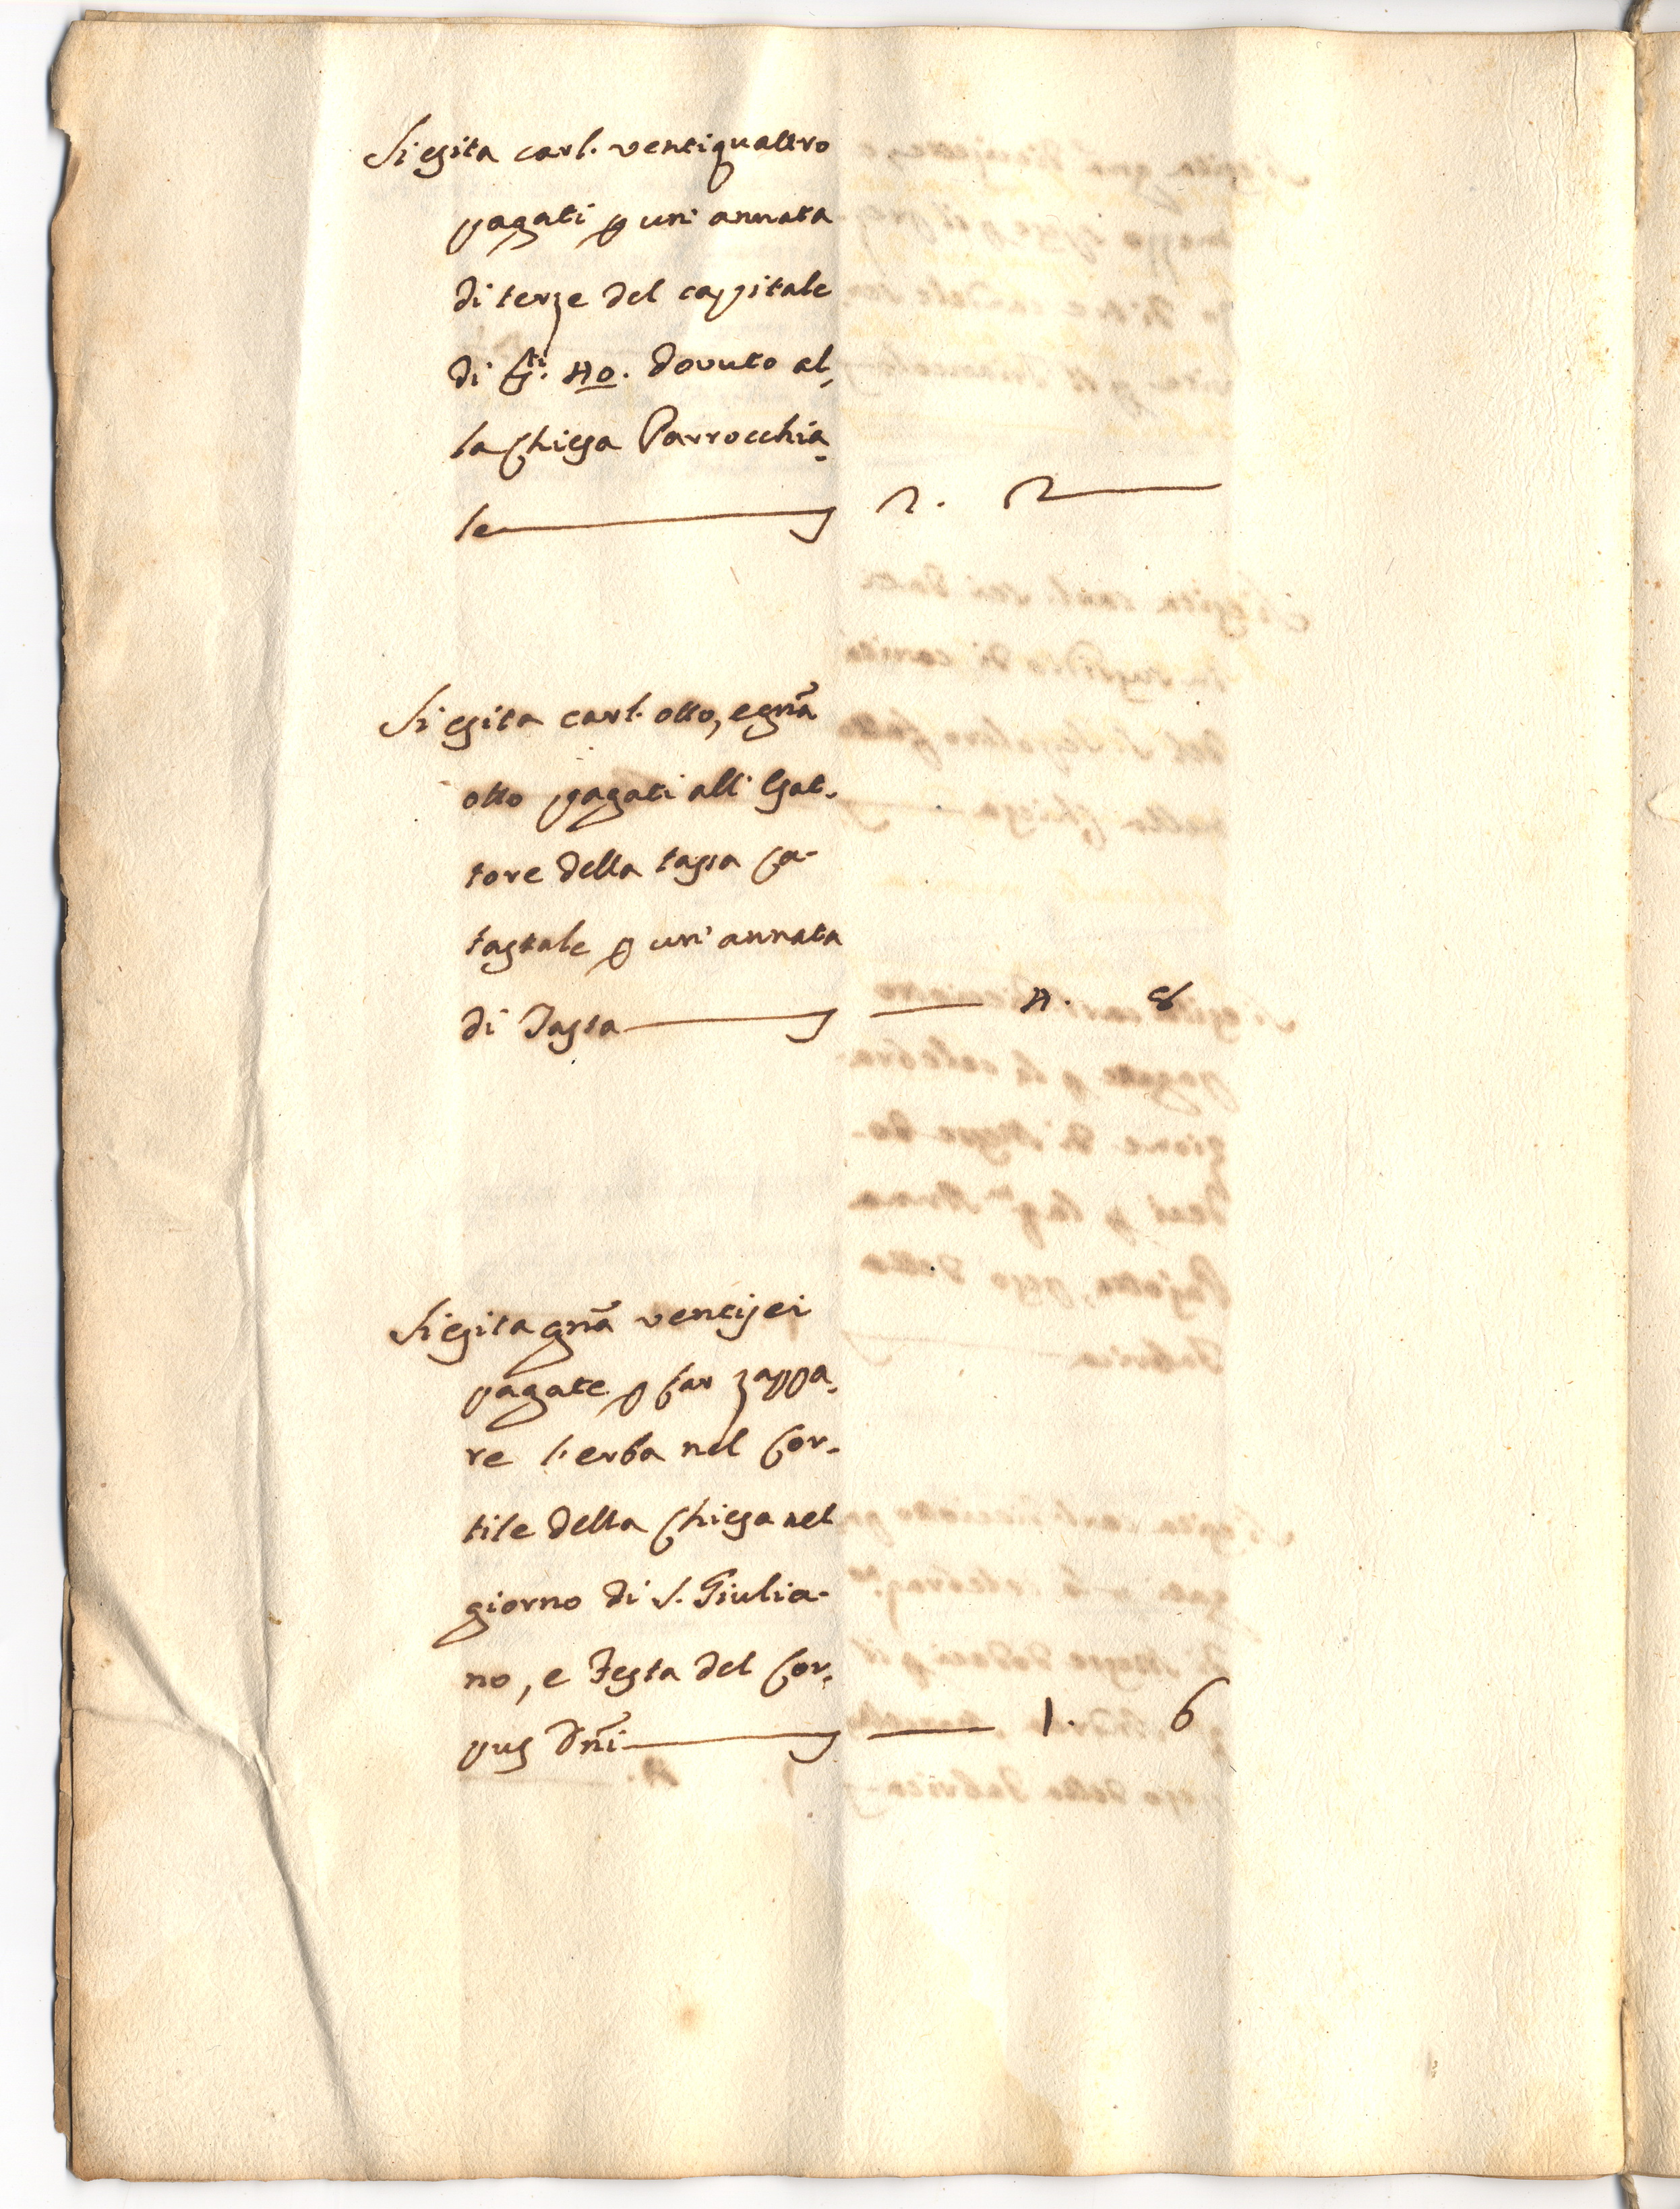 Si esita carl. ventiquattro
pagati p un' annata
di terze del capitale
di D.ti 40. dovuto al,
la Chiesa Parrocchia,
le 2. 2
Si esita carl. otto, e gna
otto pagati all' Esat-
tore della tassa Ca-
tastale p un' annata
di Tassa 4. 8
Si esita gna ventisei
pagate p far zappa,
re l'erba nel Cor-
tile della Chiesa nel
giorno di S. Giulia-
no, e Festa del Cor,
pus Dni 1. 6